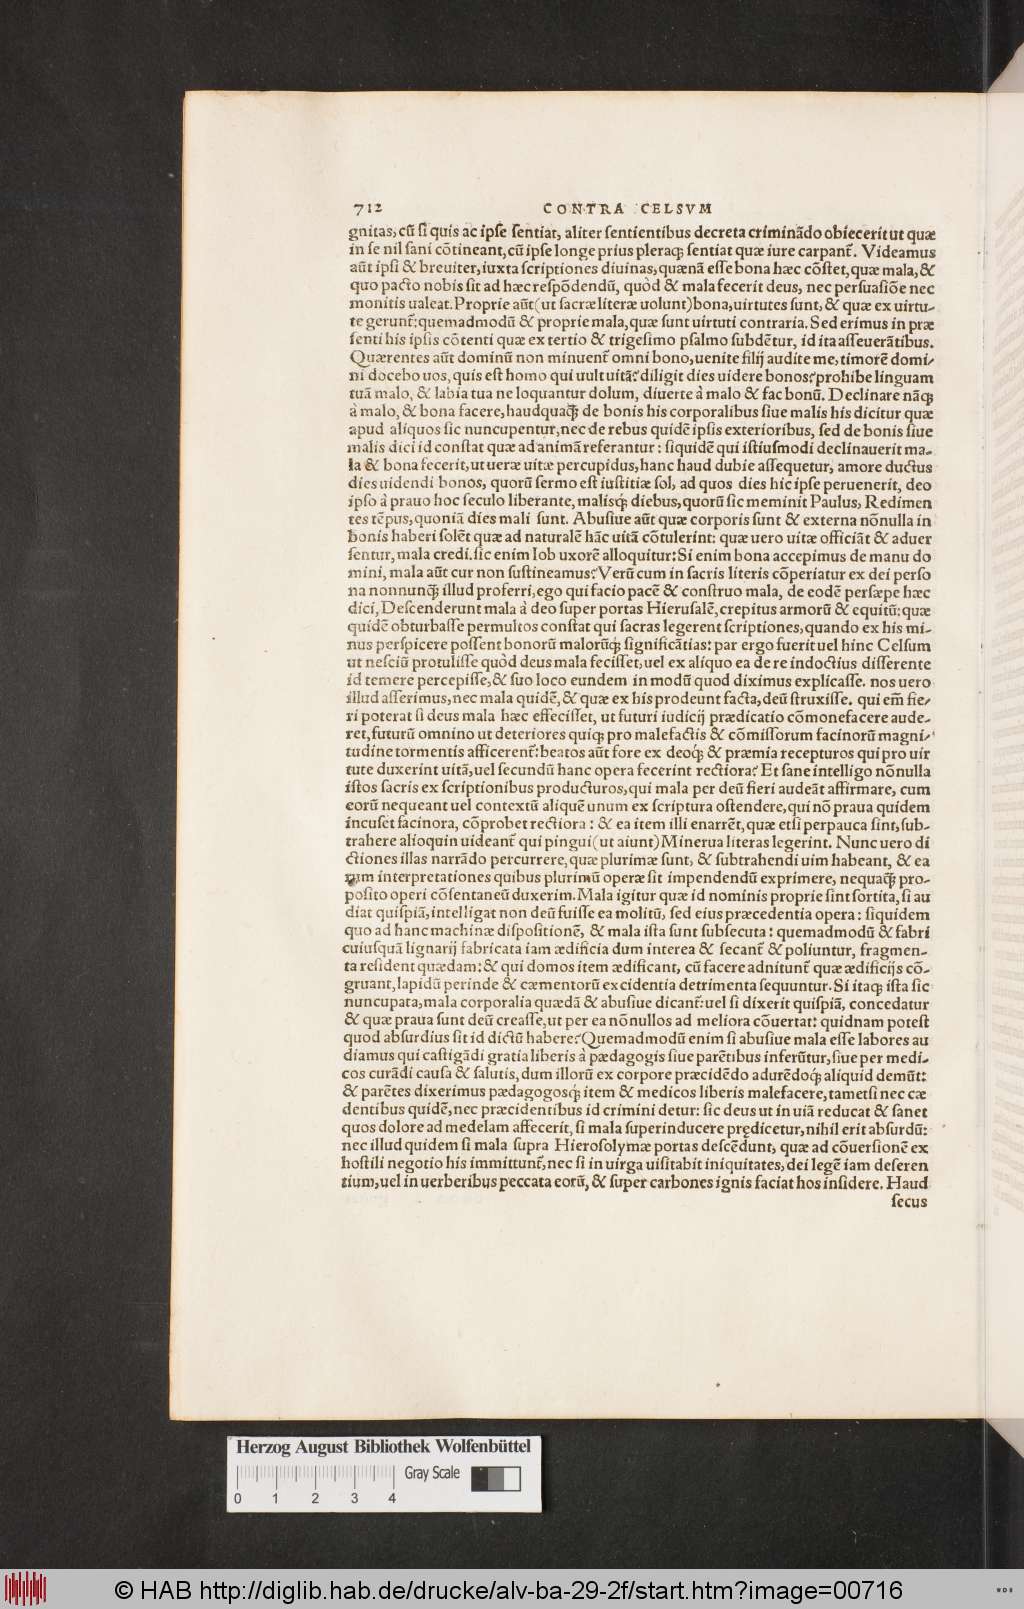 712 CONTRA CELSVM
gnitas, cũ ſi quis ac ipſe ſentiat, aliter ſentientibus decreta criminãdo obiecerit ut quæ
in ſe nil ſani cõtineant, cũ ipſe longe prius pleraqꝫ ſentiat quæ iure carpant᷑. Videamus
aũt ipſi & breuiter, iuxta ſcriptiones diuinas, quænã eſſe bona hæc cõſtet, quæ mala, &
quo pacto nobis ſit ad hæc reſpõdendũ, quòd & mala fecerit deus, nec perſuaſiõe nec
monitis ualeat. Proprie aũt (ut ſacræ literæ uolunt) bona, uirtutes ſunt, & quæ ex uirtu-
te gerunt᷑: quemadmodũ & proprie mala, quæ ſunt uirtuti contraria. Sed erimus in præ
ſenti his ipſis cõtenti quæ ex tertio & trigeſimo pſalmo ſubdẽtur, id ita aſſeuerãtibus.
Quærentes aũt dominũ non minuent᷑ omni bono, uenite filij audite me, timorẽ domi-
ni docebo uos, quis eſt homo qui uult uitã? diligit dies uidere bonos? prohibe linguam
tuã malo, & labia tua ne loquantur dolum, diuerte à malo & fac bonũ. Declinare nãqꝫ
à malo, & bona facere, haudquaꝗ̃ de bonis his corporalibus ſiue malis his dicitur quæ
apud aliquos ſic nuncupentur, nec de rebus quidẽ ipſis exterioribus, ſed de bonis ſiue
malis dici id conſtat quæ ad animã referantur: ſiquidẽ qui iſtiuſmodi declinauerit ma-
la & bona fecerit, ut ueræ uitæ percupidus, hanc haud dubie aſſequetur, amore ductus
dies uidendi bonos, quorũ ſermo eſt iuſtitiæ ſol, ad quos dies hic ipſe peruenerit, deo
ipſo à prauo hoc ſeculo liberante, malisqꝫ diebus, quorũ ſic meminit Paulus, Redimen
tes tẽpus, quoniã dies mali ſunt. Abuſiue aũt quæ corporis ſunt & externa nõnulla in
bonis haberi ſolẽt quæ ad naturalẽ hãc uitã cõtulerint: quæ uero uitæ officiãt & aduer
ſentur, mala credi. ſic enim Iob uxorẽ alloquitur: Si enim bona accepimus de manu do
mini, mala aũt cur non ſuſtineamus? Verũ cum in ſacris literis cõperiatur ex dei perſo
na nonnunꝗ̃ illud proferri, ego qui facio pacẽ & conſtruo mala, de eodẽ perſæpe hæc
dici, Deſcenderunt mala à deo ſuper portas Hieruſalẽ, crepitus armorũ & equitũ: quæ
quidẽ obturbaſſe permultos conſtat qui ſacras legerent ſcriptiones, quando ex his mi-
nus perſpicere poſſent bonorũ malorũqꝫ ſignificãtias: par ergo fuerit uel hinc Celſum
ut neſciũ protuliſſe quòd deus mala feciſſet, uel ex aliquo ea de re indoctius differente
id temere percepiſſe, & ſuo loco eundem in modũ quod diximus explicaſſe. nos uero
illud aſſerimus, nec mala quidẽ, & quæ ex his prodeunt facta, deũ ſtruxiſſe. qui em̃ fie-
ri poterat ſi deus mala hæc effeciſſet, ut futuri iudicij prædicatio cõmonefacere aude-
ret, futurũ omnino ut deteriores quiqꝫ pro malefactis & cõmiſſorum facinorũ magni-
tudine tormentis afficerent᷑: beatos aũt fore ex deoqꝫ & præmia recepturos qui pro uir
tute duxerint uitã, uel ſecundũ hanc opera fecerint rectiora? Et ſane intelligo nõnulla
iſtos ſacris ex ſcriptionibus producturos, qui mala per deũ fieri audeãt affirmare, cum
eorũ nequeant uel contextũ aliquẽ unum ex ſcriptura oſtendere, qui nõ praua quidem
incuſet facinora, cõprobet rectiora: & ea item illi enarrẽt, quæ etſi perpauca ſint, ſub-
trahere alioquin uideant᷑ qui pingui (ut aiunt) Minerua literas legerint. Nunc uero di
ctiones illas narrãdo percurrere, quæ plurimæ ſunt, & ſubtrahendi uim habeant, & ea
rum interpretationes quibus plurimũ operæ ſit impendendũ exprimere, nequaꝗ̃ pro-
poſito operi cõſentaneũ duxerim. Mala igitur quæ id nominis proprie ſint ſortita, ſi au
diat quiſpiã, intelligat non deũ fuiſſe ea molitũ, ſed eius præcedentia opera: ſiquidem
quo ad hanc machinæ diſpoſitionẽ, & mala iſta ſunt ſubſecuta: quemadmodũ & fabri
cuiuſquã lignarij fabricata iam ædificia dum interea & ſecant᷑ & poliuntur, fragmen-
ta reſident quædam: & qui domos item ædificant, cũ facere adnitunt᷑ quæ ædificijs cõ-
gruant, lapidũ perinde & cæmentorũ excidentia detrimenta ſequuntur. Si itaqꝫ iſta ſic
nuncupata, mala corporalia quædã & abuſiue dicant᷑: uel ſi dixerit quiſpiã, concedatur
& quæ praua ſunt deũ creaſſe, ut per ea nõnullos ad meliora cõuertat: quidnam poteſt
quod abſurdius ſit id dictũ habere? Quemadmodũ enim ſi abuſiue mala eſſe labores au
diamus qui caſtigãdi gratia liberis à pædagogis ſiue parẽtibus inferũtur, ſiue per medi-
cos curãdi cauſa & ſalutis, dum illorũ ex corpore præcidẽdo adurẽdoqꝫ aliquid demũt:
& parẽtes dixerimus pædagogosqꝫ item & medicos liberis malefacere, tametſi nec cæ
dentibus quidẽ, nec præcidentibus id crimini detur: ſic deus ut in uiã reducat & ſanet
quos dolore ad medelam affecerit, ſi mala ſuperinducere prędicetur, nihil erit abſurdũ:
nec illud quidem ſi mala ſupra Hieroſolymæ portas deſcẽdunt, quæ ad cõuerſionẽ ex
hoſtili negotio his immittunt᷑, nec ſi in uirga uiſitabit iniquitates, dei legẽ iam deſeren
tium, uel in uerberibus peccata eorũ, & ſuper carbones ignis faciat hos inſidere. Haud
ſecus
Herzog August Bibliothek Wolfenbüttel
Gray Scale
0 1 2 3 4
© HAB http://diglib.hab.de/drucke/alv-ba-29-2f/start.htm?image=00716